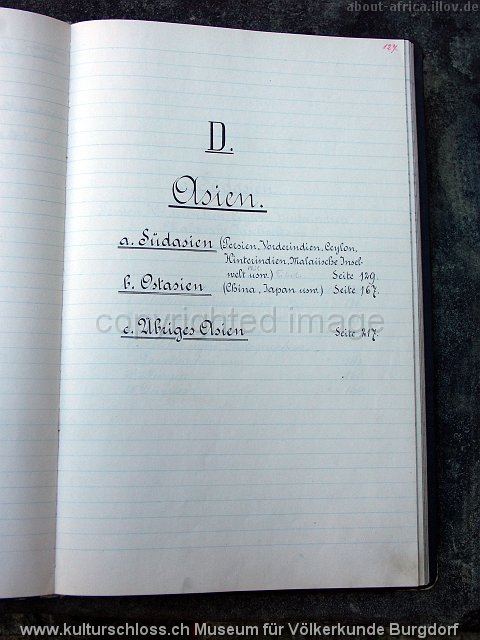 about-africa.illov.de
127.
D.
Asien.
a. Südasien (Persien, Vorderindien, Ceylon,
Hinterindien, Malaiische Insel-
welt usw.) Seite 129.
b. Ostasien (China, Japan usw.) Seite 167.
copyrighted image
c. Übriges Asien Seite 217.
www.kulturschloss.ch Museum für Völkerkunde Burgdorf